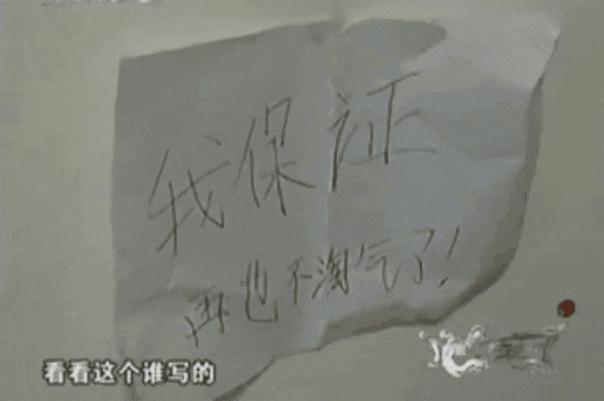 我保证
再也不淘气了！
看看这个谁写的